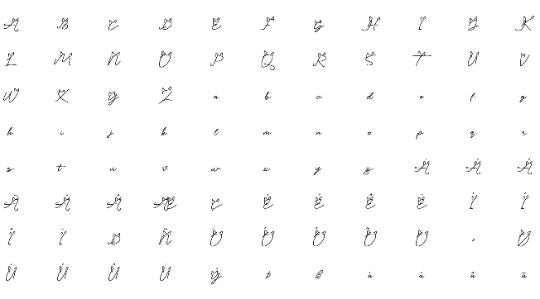 A B C D E F G H I J K
L M N O P Q R S T U V
W X Y Z a b c d e f g
h i j k l m n o p q r
s t u v w x y z À Á Â
Ã Ä Å Æ Ç È É Ê Ë Ì Í
Î Ï Ð Ñ Ò Ó Ô Õ Ö × Ø
Ù Ú Û Ü Ý Þ ß à á â ã